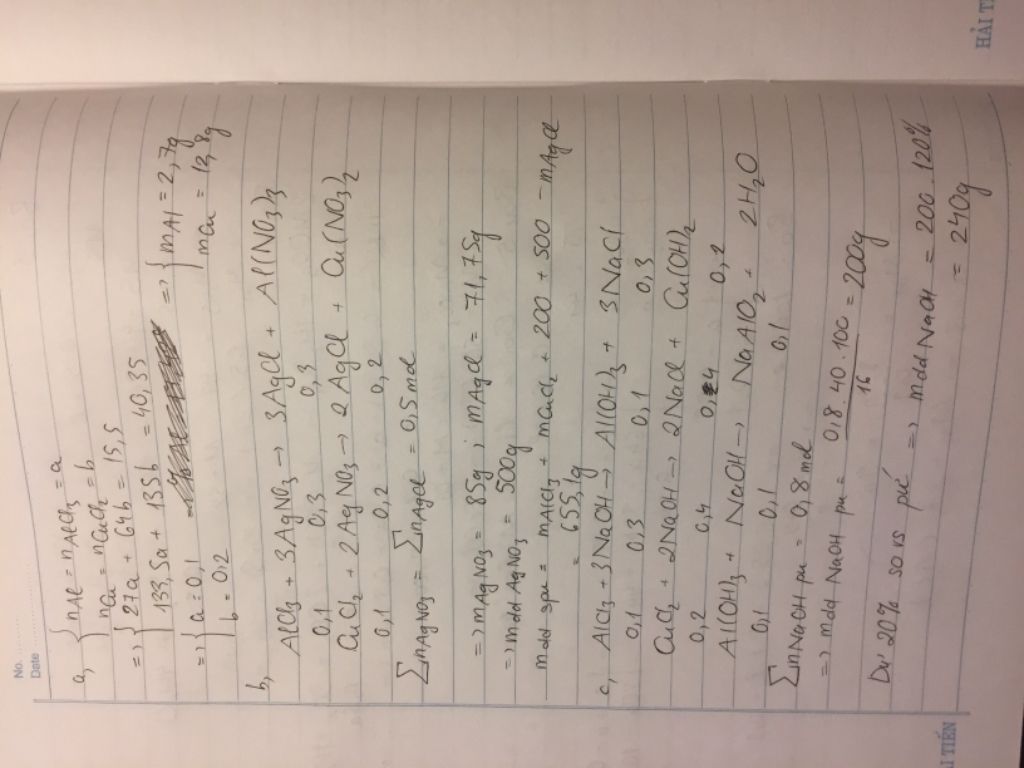 No.
Date
a, { nAl = nAlCl3 = a
nCu = nCuCl2 = b
=> { 27a + 64b = 15,5
133,5a + 135b = 40,35
=> { a = 0,1
b = 0,2
=> { mAl = 2,7g
mCu = 12,8g
b, AlCl3 + 3AgNO3 → 3AgCl + Al(NO3)3
0,1 0,3 0,3
CuCl2 + 2AgNO3 → 2AgCl + Cu(NO3)2
0,1 0,2 0,2
∑nAgNO3 = ∑nAgCl = 0,5 mol
=> mAgNO3 = 85g ; mAgCl = 71,75g
=> mdd AgNO3 = 500g
mdd spu = mAlCl3 + mCuCl2 + 200 + 500 - mAgCl
= 655,1g
c, AlCl3 + 3NaOH → Al(OH)3 + 3NaCl
0,1 0,3 0,1 0,3
CuCl2 + 2NaOH → 2NaCl + Cu(OH)2
0,2 0,4 0,4 0,2
Al(OH)3 + NaOH → NaAlO2 + 2H2O
0,1 0,1 0,1
∑nNaOH pu = 0,8 mol
=> mdd NaOH pu = 0,8.40.100 / 16 = 200g
Dư 20% so vs pứ => mdd NaOH = 200.120%
= 240g
HẢI T
I TIẾN